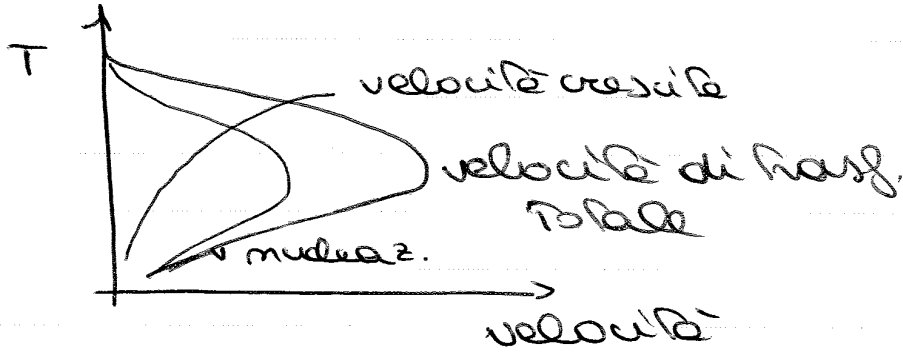 T
velocità crescita
velocità di trasf.
Totale
v nucleaz.
velocità